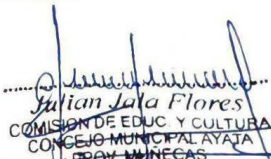 Julian Jala Flores
COMISION DE EDUC. Y CULTURA
CONCEJO MUNICIPAL AYATA
PROV. MUÑECAS